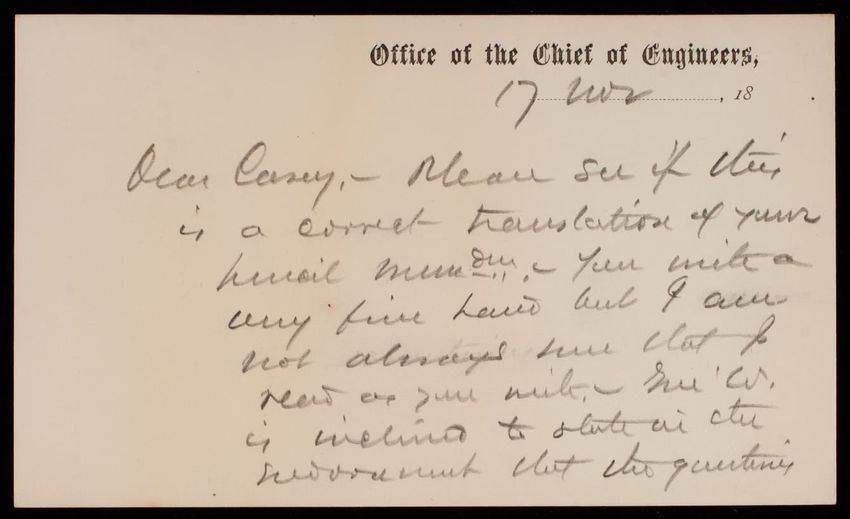 Office of the Chief of Engineers,
17 Nov , 18
Dear Casey, - Please see if this
is a correct translation of your
pencil mem dm. - You write a
very fine hand but I am
not always sure that I
read as you write. - Genl W.
is inclined to state in the
endorsement that the questions